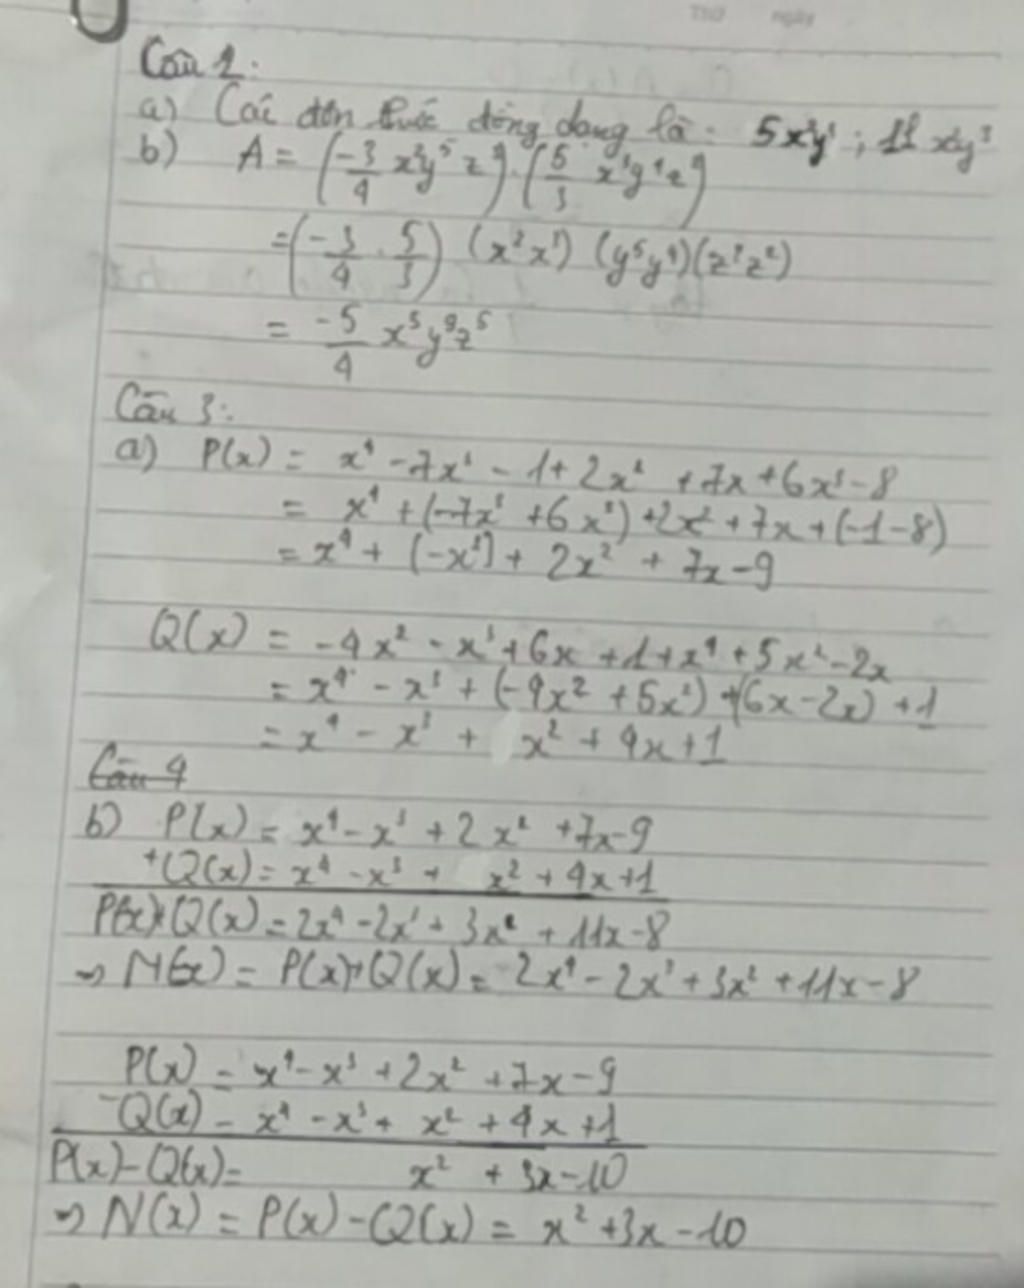 Thứ ngày
Câu 2:
a) Các đơn thức đồng dạng là: 5x²y³; 11x²y³
b) A = (-3/4 x²y⁵z³).(5/3 x³y⁴z²)
= (-3/4 . 5/3) (x²x³) (y⁵y⁴)(z³z²)
= -5/4 x⁵y⁹z⁵
Câu 3:
a) P(x) = x⁴ - 7x³ - 1 + 2x² + 7x + 6x³ - 8
= x⁴ + (-7x³ + 6x³) + 2x² + 7x + (-1 - 8)
= x⁴ + (-x³) + 2x² + 7x - 9
Q(x) = -4x² - x³ + 6x + 1 + x⁴ + 5x² - 2x
= x⁴ - x³ + (-4x² + 5x²) + (6x - 2x) + 1
= x⁴ - x³ + x² + 4x + 1
Câu 4
b) P(x) = x⁴ - x³ + 2x² + 7x - 9
+ Q(x) = x⁴ - x³ + x² + 4x + 1
P(x) + Q(x) = 2x⁴ - 2x³ + 3x² + 11x - 8
⇒ M(x) = P(x) + Q(x) = 2x⁴ - 2x³ + 3x² + 11x - 8
P(x) = x⁴ - x³ + 2x² + 7x - 9
- Q(x) = x⁴ - x³ + x² + 4x + 1
P(x) - Q(x) = x² + 3x - 10
⇒ N(x) = P(x) - Q(x) = x² + 3x - 10